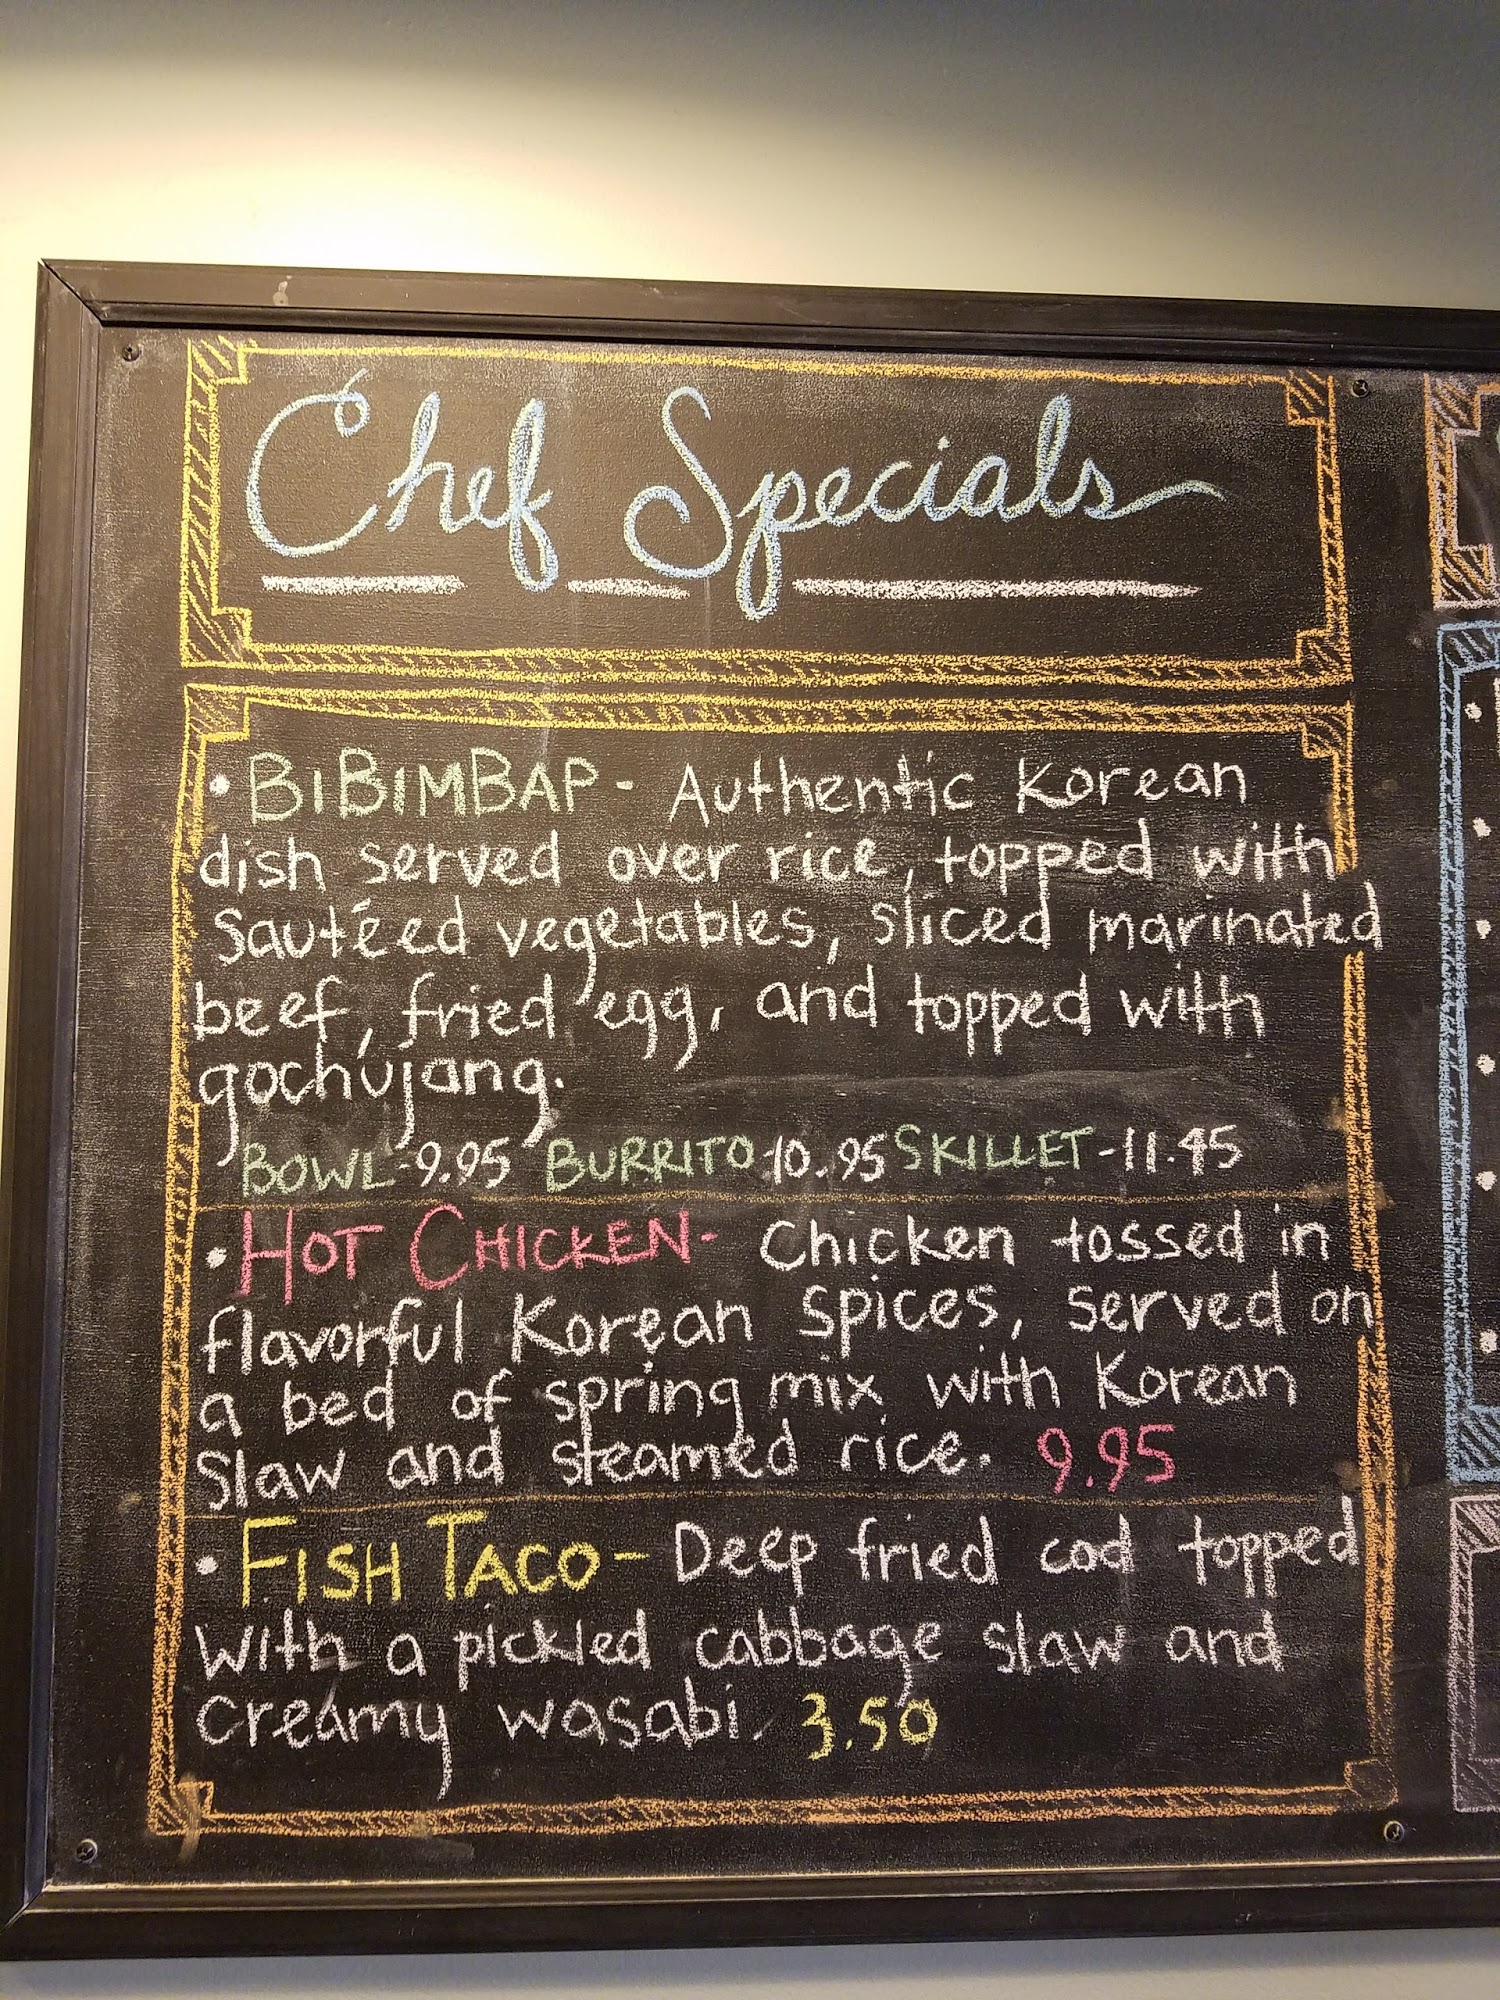 Chef Specials
• BIBIMBAP - Authentic Korean
dish served over rice, topped with
Sautéed vegetables, sliced marinated
beef, fried egg, and topped with
gochujang.
BOWL-9.95 BURRITO-10.95 SKILLET-11.45
• HOT CHICKEN- Chicken tossed in
flavorful Korean spices, served on
a bed of spring mix with Korean
Slaw and steamed rice. 9.95
• FISH TACO- Deep fried cod topped
with a pickled cabbage slaw and
creamy wasabi. 3.50